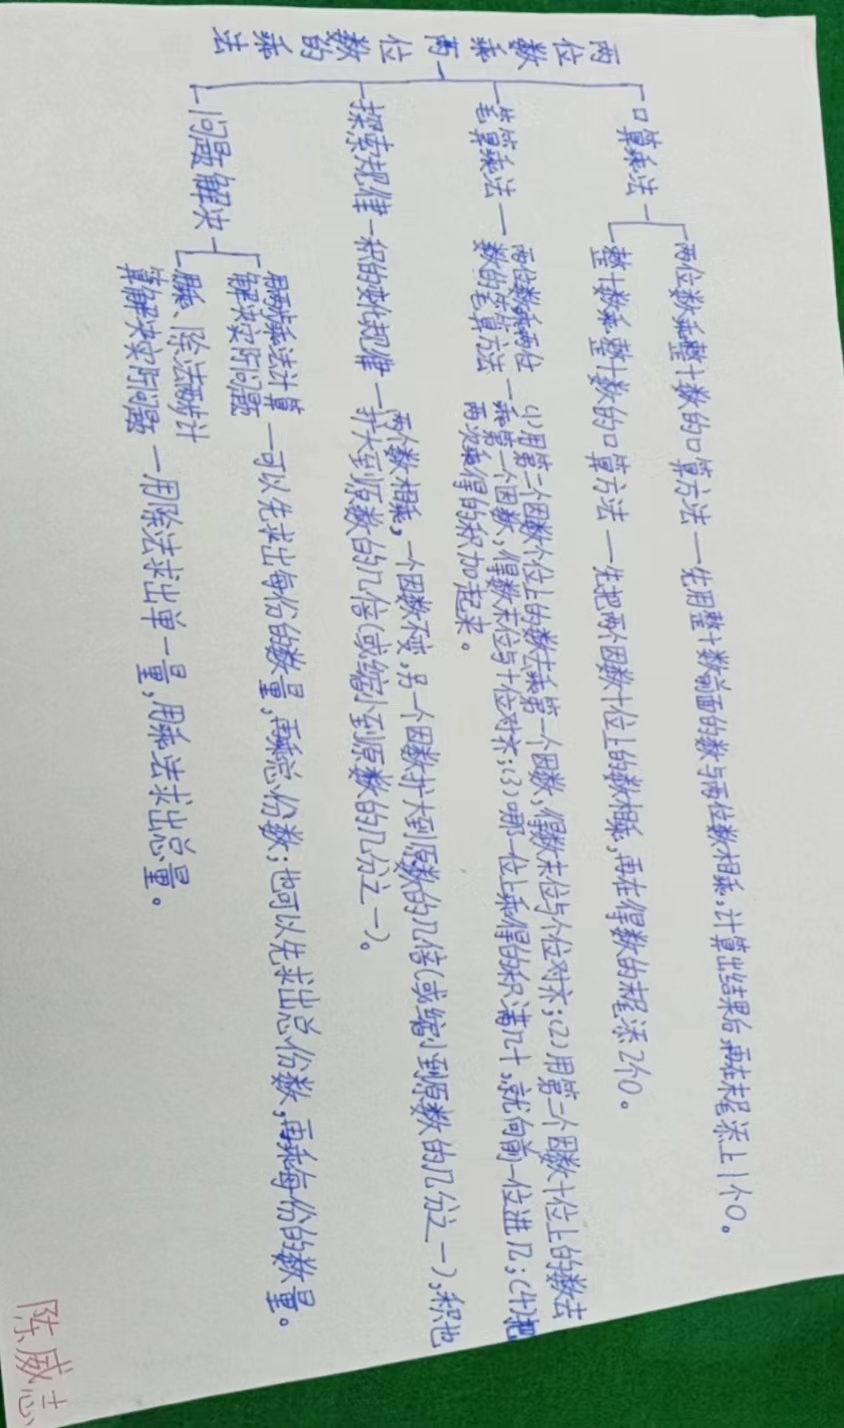 两位数乘两位数的乘法
口算乘法
两位数乘整十数的口算方法
先用整十数前面的数与两位数相乘,计算出结果后,再在末尾添上1个0。
整十数乘整十数的口算方法
先把两个因数十位上的数相乘,再在得数的末尾添2个0。
笔算乘法
两位数乘两位
数的笔算方法
(1)用第二个因数个位上的数去乘第一个因数,得数末位与个位对齐;(2)用第二个因数十位上的数去
乘第一个因数,得数末位与十位对齐;(3)哪一位上乘得的积满几十,就向前一位进几;(4)把
两次乘得的积加起来。
探索规律
积的变化规律
两个数相乘,一个因数不变,另一个因数扩大到原数的几倍(或缩小到原数的几分之一),积也
扩大到原数的几倍(或缩小到原数的几分之一)。
问题解决
用两步乘法计算
解决实际问题
可以先求出每份的数量,再乘总份数;也可以先求出总份数,再乘每份的数量。
用乘、除法两步计
算解决实际问题
用除法求出单一量,用乘法求出总量。
陈威志